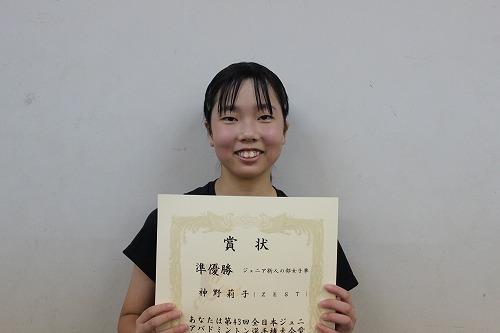 賞状
準優勝 ジュニア新人の部女子単
神野莉子(ZEST)
あなたは第43回全日本ジュニ
アバドミントン選手権大会愛